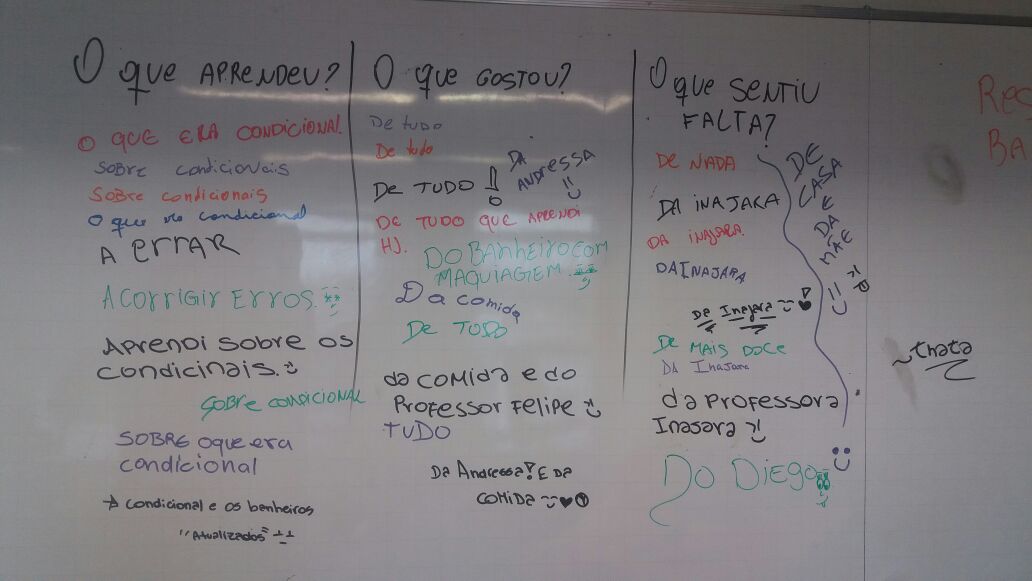 O que APRENDEU?
O QUE ERA CONDICIONAL.
SOBRE condicionais
Sobre condicionais
O que condicional
A ERRAR
A Corrigir Erros.
Aprendi sobre os
condicinais.
Sobre condicional
SOBRE oque era
condicional
→ Condicional e os banheiros
"Atualizados"
O que GOSTOU?
De tudo
De tudo
DE TUDO!
DA
ANDRESSA
DE TUDO QUE APRENDI
HJ.
DO BANHEIRO COM
MAQUIAGEM.
Da comida
De TUDO
da comida e do
Professor Felipe
TUDO
Da Andressa! E da
comida
O que SENTIU
FALTA?
DE NADA
DA INAJARA
DA INAJARA.
DA INAJARA
Da Inajara
DE MAIS DOCE
DA INAJARA
da professora
Inajara
Do Diego
DE
CASA
E
DA
MÃE
~thata
Rec
BA